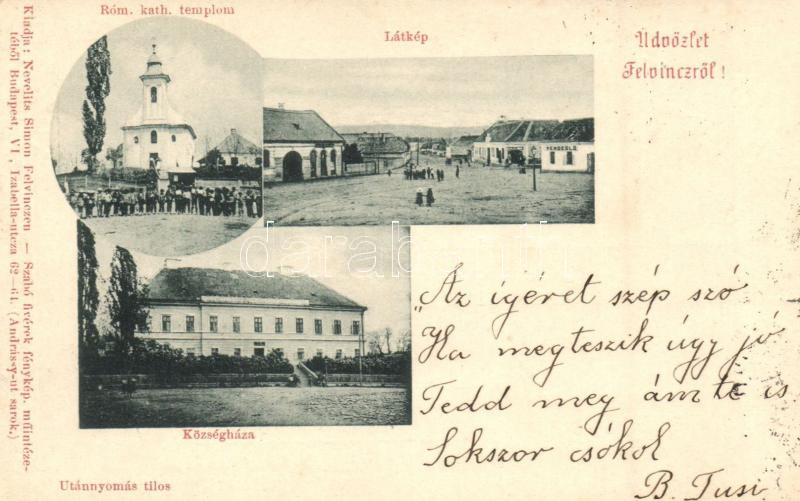 Róm. kath. templom
Látkép
Üdvözlet
Felvinczről!
VENDÉGLŐ
Kiadja: Nevelits Simon Felvinczen — Szabó fivérek fénykép. műintéze-
téből Budapest, VI., Izabella-utcza 62—64. (Andrássy-ut sarok.)
darabanth
"Az igéret szép szó
Ha megteszik úgy jó
Tedd meg ám te is
Sokszor csókol
B. Tusi
Községháza
Utánnyomás tilos